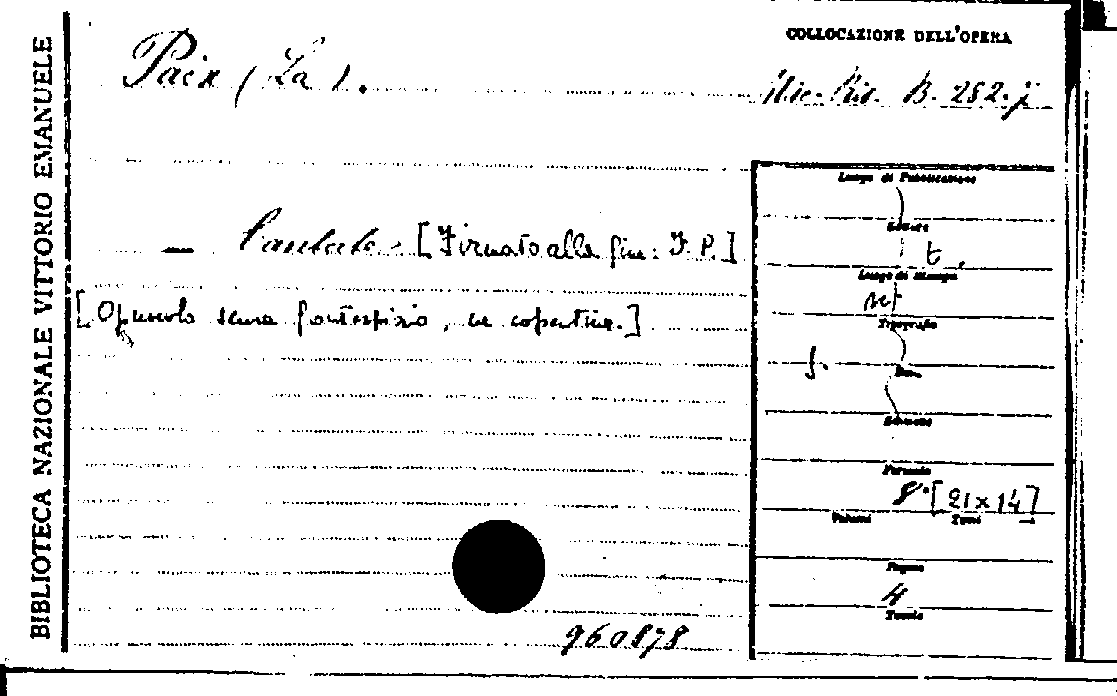 BIBLIOTECA NAZIONALE VITTORIO EMANUELE
COLLOCAZIONE DELL'OPERA
Paix (La).
Misc. Ris. B. 252. j
Luogo di Pubblicazione
— Cantate. [Firmato alla fine: F. P.]
Editore
t.
Luogo di Stampa
[Opuscolo senza frontespizio, ne copertina.]
Tipografo
s.
Data
Edizione
Formato
8º [21 x 14]
Volumi Tomi
Pagine
4
Tavole
960878